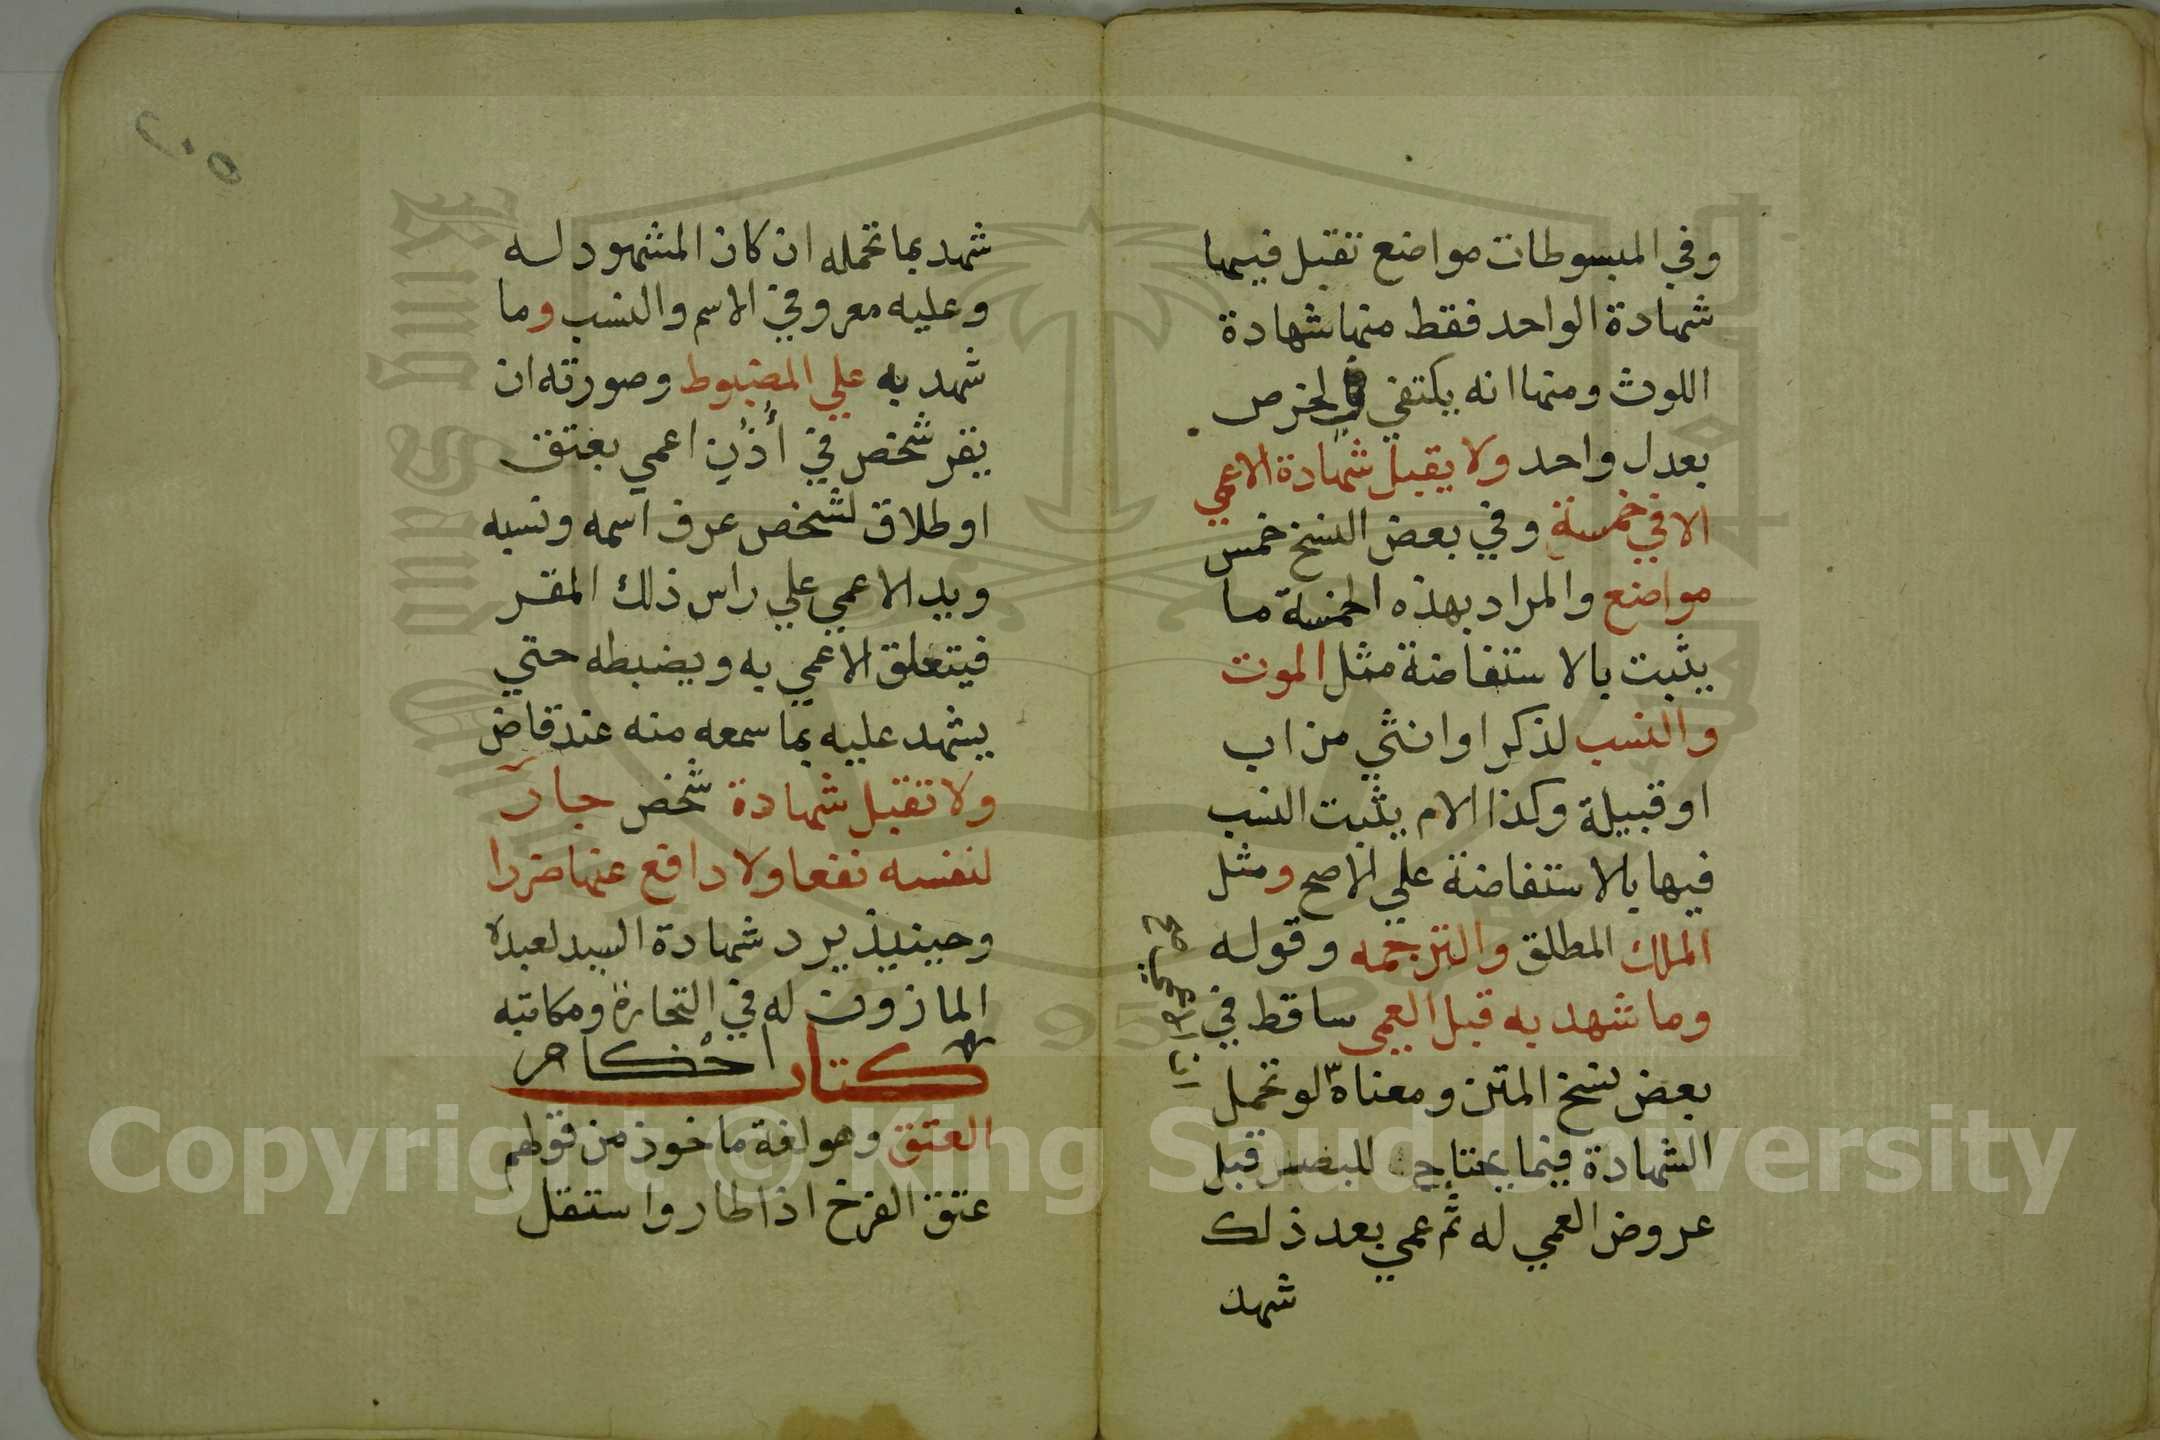 وفي المبسوطات مواضع تقبل فيها
شهادة الواحد فقط منها شهادة
اللوث ومنها انه يكتفي في الخرص
بعدل واحد ولا يقبل شهادة الاعمي
الا في خمسة وفي بعض النسخ خمس
مواضع والمراد بهذه الخمسة ما
يثبت بالاستفاضة مثل الموت
والنسب لذكر او انثي من اب
او قبيلة وكذا الام يثبت النسب
فيها بالاستفاضة علي الاصح ومثل
الملك المطلق والترجمه وقوله
وما شهد به قبل العمي ساقط في
بعض نسخ المتن ومعناه لو تحمل
الشهادة فيما يحتاج للبصر قبل
عروض العمي له ثم عمي بعد ذلك
شهد
٢٠٥
شهد بما تحمله ان كان المشهود له
وعليه معروفي الاسم والنسب وما
شهد به علي المضبوط وصورته ان
يقر شخص في أذن اعمي بعتق
او طلاق لشخص عرف اسمه ونسبه
ويد الاعمي علي راس ذلك المقر
فيتعلق الاعمي به ويضبطه حتي
يشهد عليه بما سمعه منه عند قاض
ولا تقبل شهادة شخص جار
لنفسه نفعا ولا دافع عنها ضررا
وحينيذ يرد شهادة السيد لعبده
الماذون له في التجارة ومكاتبه
كتاب احكام
العتق وهو لغة ماخوذ من قولهم
عتق الفرخ اذا طار واستقل
Copyright © King Saud University
King Saud University
1957